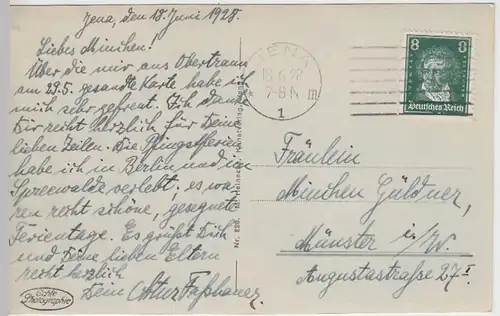 Jena, den 18. Juni 1928.
Liebes Minchen!
Über die mir aus Obertraun
am 29.5. gesandte Karte habe ich
mich sehr gefreut. Ich danke
Dir recht herzlich für Deine
lieben Zeilen. Die Pfingstferien
habe ich in Berlin und im
Spreewalde verlebt; es wa-
ren recht schöne, gesegnete
Ferientage. Es grüßt Dich
und Deine lieben Eltern
recht herzlich
Dein Arthur Faßhauer.
Echte
Photographie
Nr. 626.
JENA
18.6.28
7-8 N
* m
1
8 8
Deutsches Reich
Fräulein
Minchen Güldner,
Münster i./W.
Augustastraße 27 I